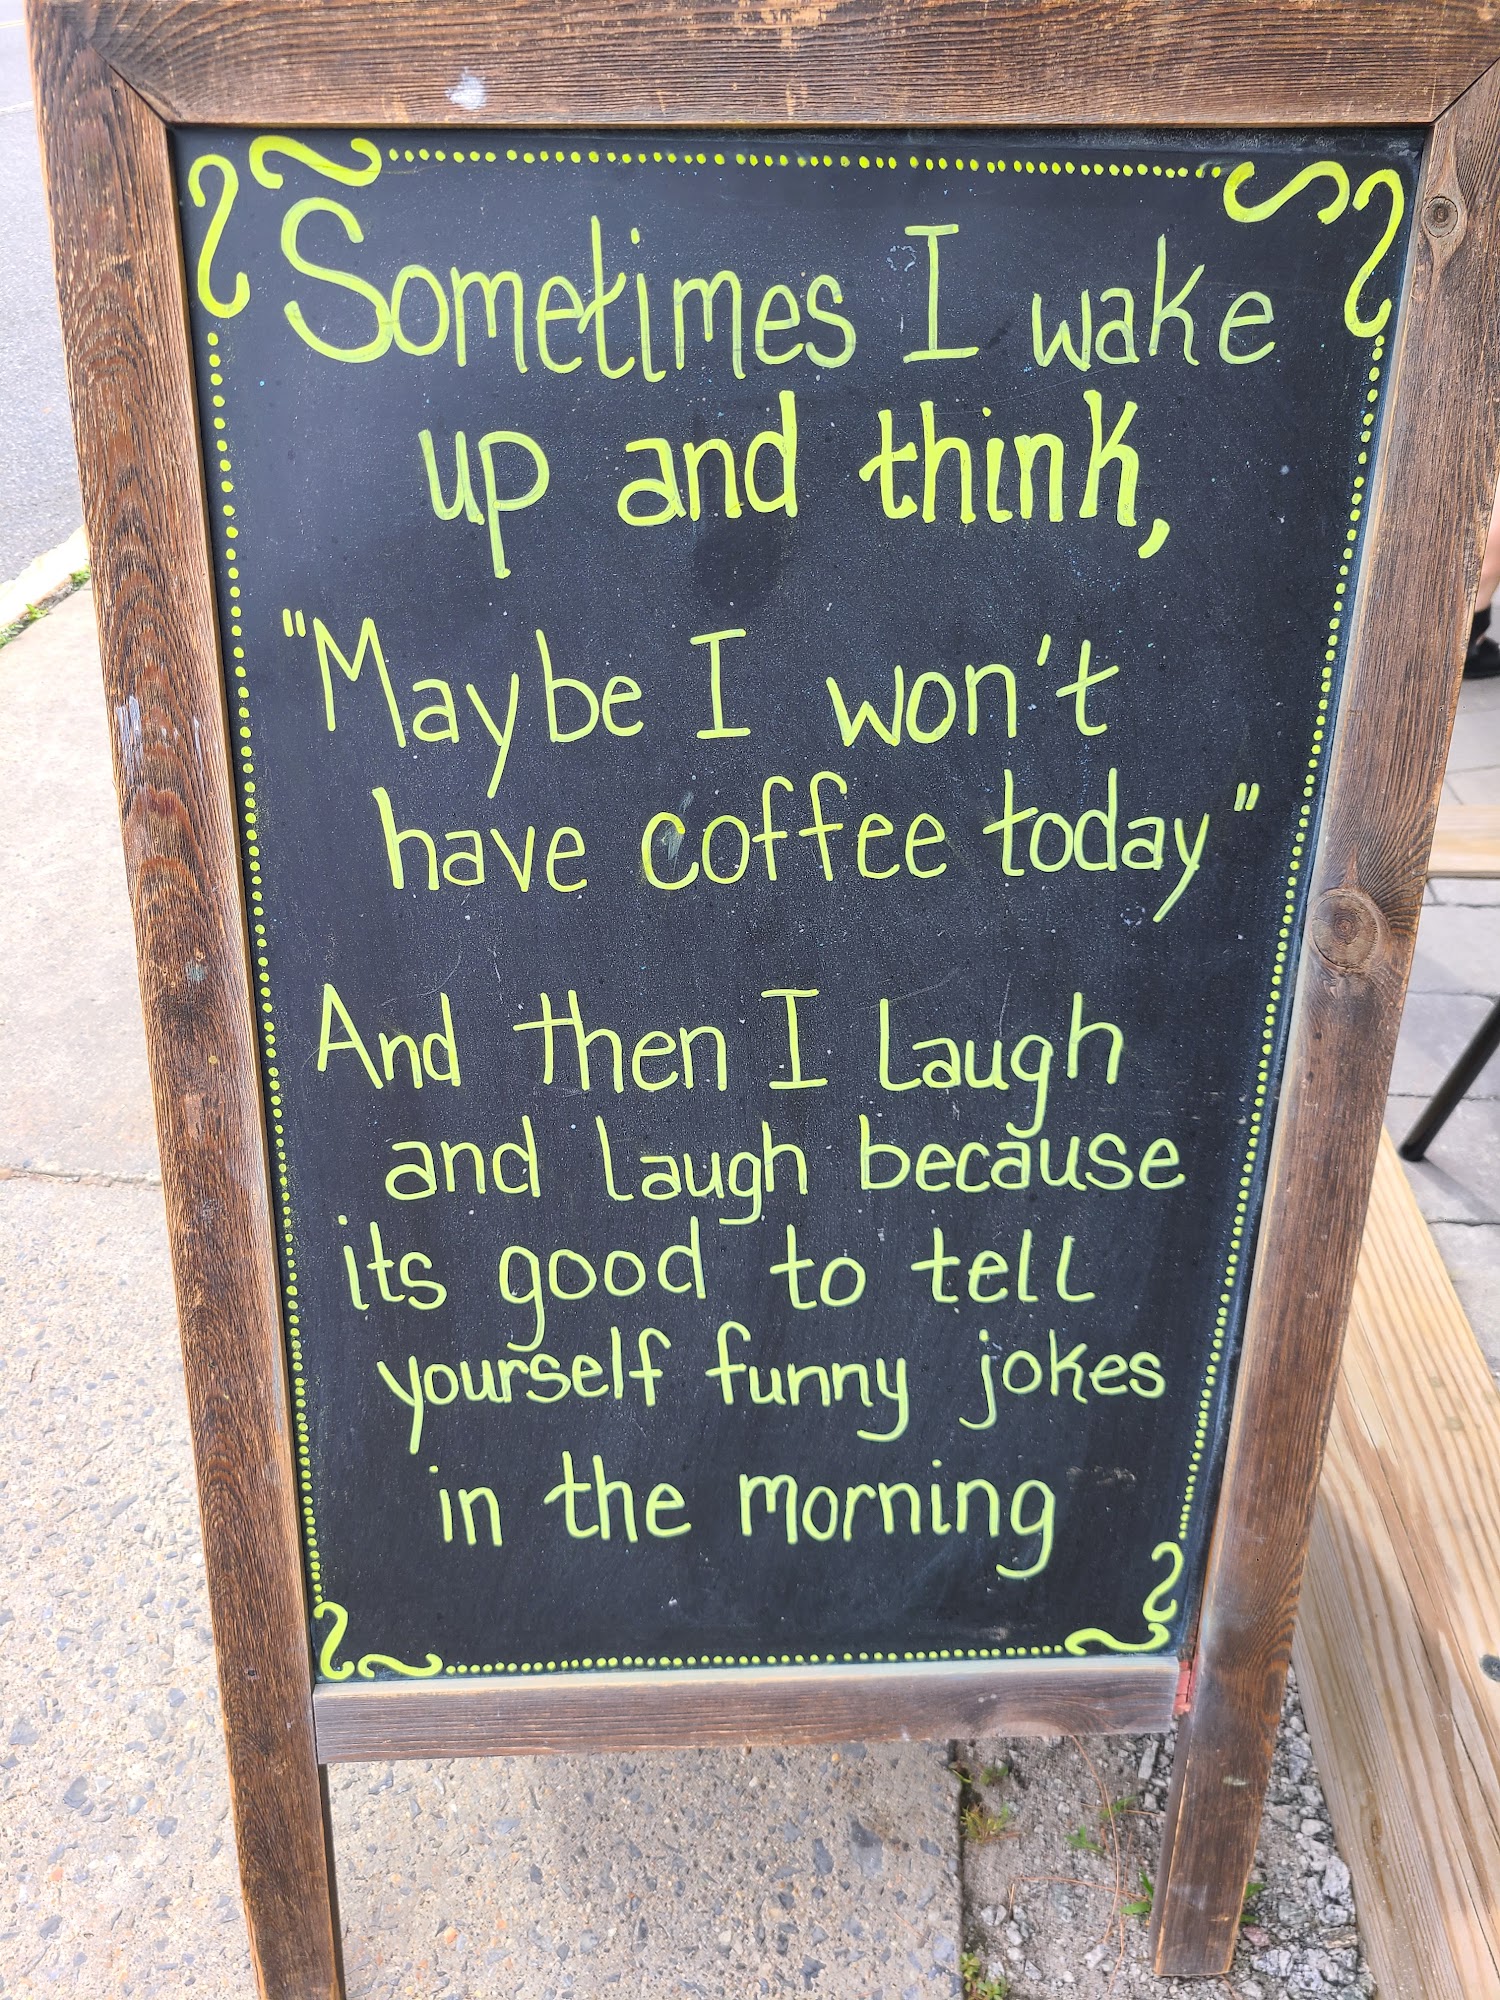 Sometimes I wake
up and think,
"Maybe I won't
have coffee today"
And then I laugh
and laugh because
its good to tell
yourself funny jokes
in the morning